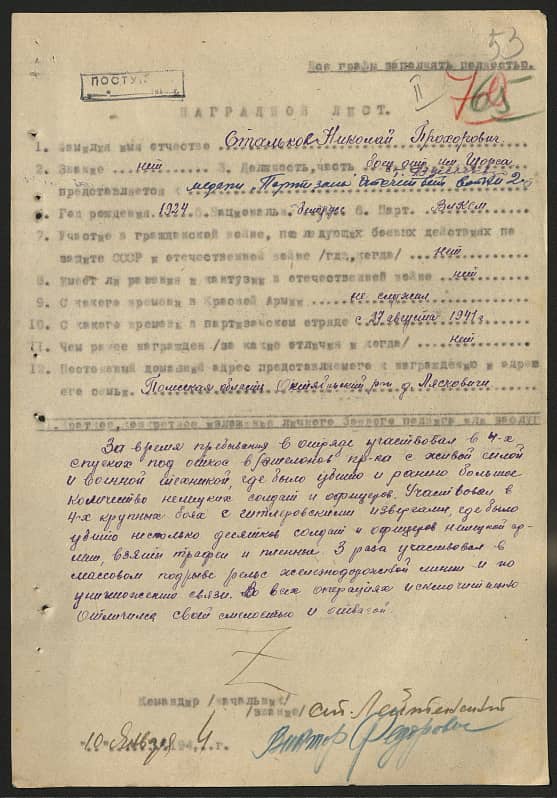 53
Все графы заполнять полностью.
ПОСТУП
II 70 65
НАГРАДНОЙ ЛИСТ.
1. Фамилия имя отчество Стальков Николай Прохорович
2. Звание нет 3. Должность, часть боец отр. им. Щорса
представляется к медали "Партизану Отечествен. войны" 2-й
4. Год рождения 1924 5. Националън. белорус 6. Парт. ВЛКСМ
7. Участие в гражданской войне, последующих боевых действиях по
защите СССР и отечественной войне /где, когда/ нет
8. Имеет ли ранения и контузии в отечественной войне нет
9. С какого времени в Красной Армии не служил
10. С какого времени в партизанском отряде с 27 августа 1941 г
11. Чем ранее награжден /за какие отличия и когда/ нет
12. Постоянный домашний адрес представляемого к награждению и адрес
его семьи. Полесская область Октябрьский р-н д. Лясковичи
1. Краткое, конкретное изложение личного боевого подвига или заслуг
За время пребывания в отряде участвовал в 4-х
спусках под откос в/эшелонов пр-ка с живой силой
и военной техникой, где было убито и ранено большое
количество немецких солдат и офицеров. Участвовал в
4-х крупных боях с гитлеровскими извергами, где было
убито несколько десятков солдат и офицеров немецкой ар-
мии, взяты трофеи и пленные. 3 раза участвовал в
массовом подрыве рельс железнодорожной линии и по
уничтожению связи. Во всех операциях исключительно
отличился своей смелостью и отвагой.
Командир /начальник/
/звание/ ст. Лейтенант
"10" января 1944 г. Виктор Федорович